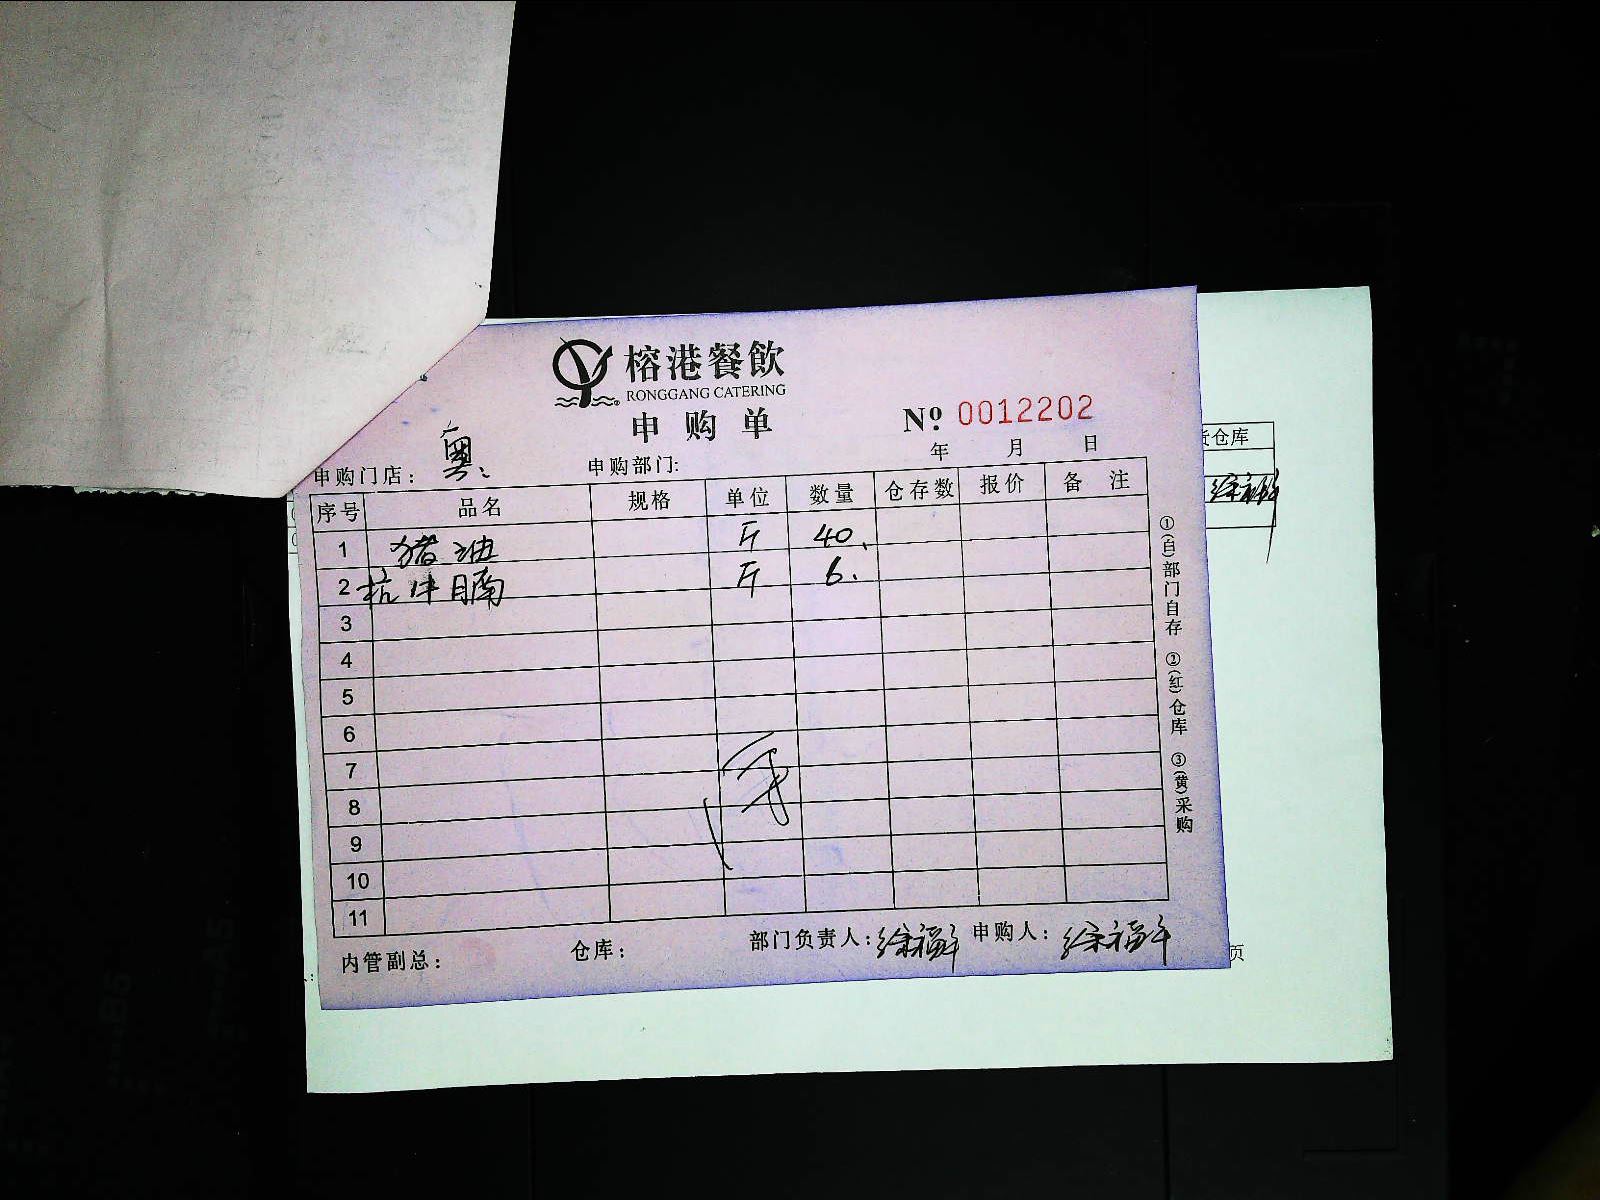 榕港餐飲
RONGGANG CATERING
申购单
№ 0012202
年 月 日
申购门店： 粤 申购部门:
序号 品名 规格 单位 数量 仓存数 报价 备注
1 猪油 斤 40
2 杭牛腩 斤 6
3
4
5
6
7
8
9
10
11
内管副总： 仓库： 部门负责人: 徐福平 申购人: 徐福平
①(白)部门自存 ②(红)仓库 ③(黄)采购
仓库
页